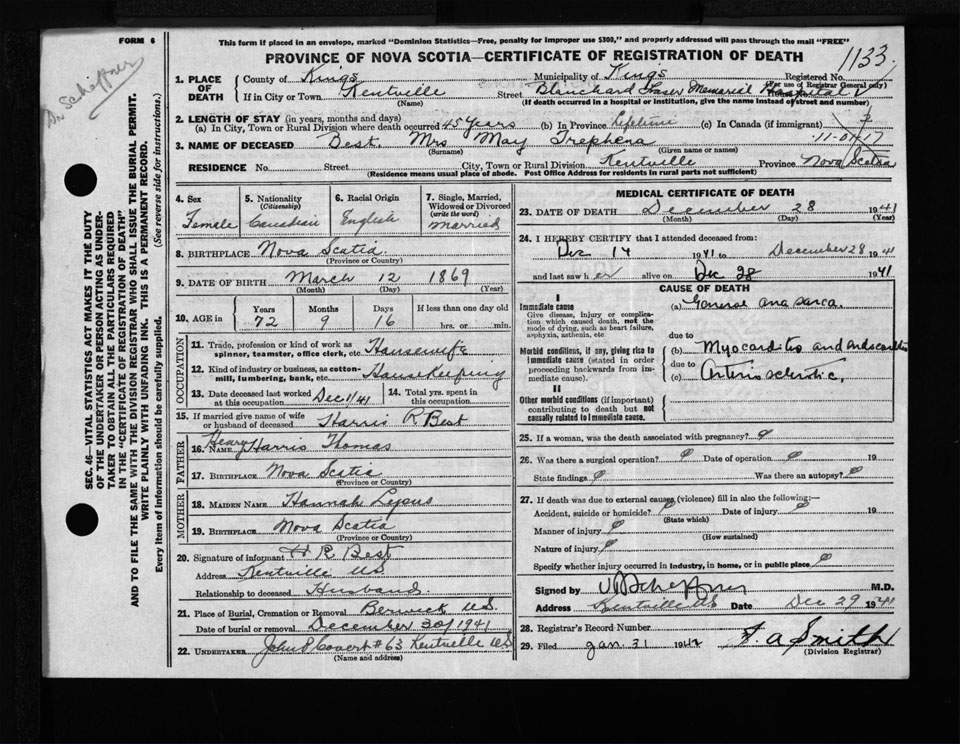 FORM 6
This form if placed in an envelope, marked "Dominion Statistics—Free, penalty for improper use $300," and properly addressed will pass through the mail "FREE"
PROVINCE OF NOVA SCOTIA—CERTIFICATE OF REGISTRATION OF DEATH
1133
Dr Scheffner
1. PLACE OF DEATH
County of Kings Municipality of Kings Registered No.
(For use of Registrar General only)
If in City or Town Kentville Street Blanchard Fraser Memorial Hospital
(Name) (If death occurred in a hospital or institution, give the name instead of street and number)
2. LENGTH OF STAY (in years, months and days)
(a) In City, Town or Rural Division where death occurred 45 years (b) In Province Lifetime (c) In Canada (if immigrant)
3. NAME OF DECEASED Best, Mrs May Trephena
(Surname) (Given name or names)
RESIDENCE No. Street City, Town or Rural Division Kentville Province Nova Scotia
(Residence means usual place of abode. Post Office Address for residents in rural parts not sufficient)
SEC. 46—VITAL STATISTICS ACT MAKES IT THE DUTY
OF THE UNDERTAKER OR PERSON ACTING AS UNDER-
TAKER TO OBTAIN ALL THE PARTICULARS REQUIRED
IN THE "CERTIFICATE OF REGISTRATION OF DEATH"
AND TO FILE THE SAME WITH THE DIVISION REGISTRAR WHO SHALL ISSUE THE BURIAL PERMIT.
WRITE PLAINLY WITH UNFADING INK. THIS IS A PERMANENT RECORD.
Every item of information should be carefully supplied. (See reverse side for instructions.)
4. Sex 5. Nationality (Citizenship) 6. Racial Origin 7. Single, Married, Widowed or Divorced (write the word)
Female Canadian English Married
8. BIRTHPLACE Nova Scotia
(Province or Country)
9. DATE OF BIRTH March 12 1869
(Month) (Day) (Year)
10. AGE in Years Months Days If less than one day old
72 9 16 hrs. or min.
OCCUPATION
11. Trade, profession or kind of work as spinner, teamster, office clerk, etc. Housewife
12. Kind of industry or business, as cotton-mill, lumbering, bank, etc. Housekeeping
13. Date deceased last worked at this occupation Dec 1/41 14. Total yrs. spent in this occupation
15. If married give name of wife or husband of deceased Harris R Best
FATHER
16. Name Henry Harris Thomas
17. BIRTHPLACE Nova Scotia
(Province or Country)
MOTHER
18. MAIDEN NAME Hannah Lyons
19. BIRTHPLACE Nova Scotia
(Province or Country)
20. Signature of informant H R Best
Address Kentville NS
Relationship to deceased Husband
21. Place of Burial, Cremation or Removal Berwick N.S.
Date of burial or removal December 30/1941
22. UNDERTAKER John P Covert #63 Kentville NS
(Name and address)
MEDICAL CERTIFICATE OF DEATH
23. DATE OF DEATH December 28 1941
(Month) (Day) (Year)
24. I HEREBY CERTIFY that I attended deceased from:
Dec 14 1941 to December 28 1941
and last saw her alive on Dec 28 1941
CAUSE OF DEATH
I
Immediate cause (a) General anasarca.
Give disease, injury or complication which caused death, not the mode of dying, such as heart failure, asphyxia, asthenia, etc
due to
Morbid conditions, if any, giving rise to immediate cause (stated in order proceeding backwards from immediate cause). (b) Myocarditis and
due to
(c) Arterio sclerotic.
II
Other morbid conditions (if important) contributing to death but not causally related to immediate cause.
25. If a woman, was the death associated with pregnancy?
26. Was there a surgical operation? Date of operation 19
State findings Was there an autopsy?
27. If death was due to external causes (violence) fill in also the following:—
Accident, suicide or homicide? Date of injury 19
(State which)
Manner of injury
(How sustained)
Nature of injury
Specify whether injury occurred in industry, in home, or in public place
Signed by M.D.
Address Kentville NS Date Dec 29 1941
28. Registrar's Record Number
29. Filed Jan. 31 1942 F. A Smith
(Division Registrar)